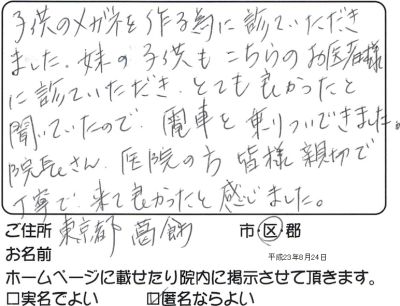 子供のメガネを作る為に診ていただき
ました。妹の子供もこちらのお医者様
に診ていただき、とても良かったと
聞いていたので、電車を乗りついできました。
院長さん、医院の方皆様親切で
丁寧で、来て良かったと感じました。
ご住所 東京都 葛飾 市・区・郡
お名前 平成23年8月24日
ホームページに載せたり院内に掲示させて頂きます。
□実名でよい ☑匿名ならよい